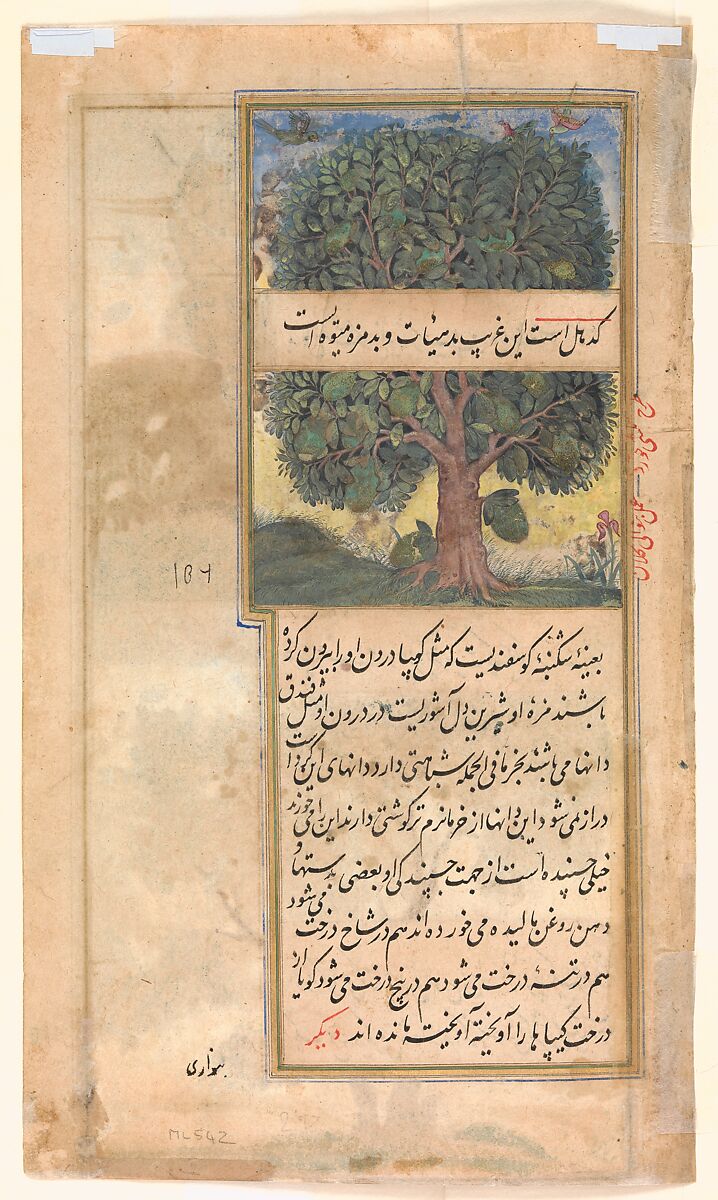 کدهل است این غریب بدهیات و بدمزه میوه ایست
بعینه شکنبه گوسفندیست که مثل کیپا درون او را بیرون کرده
باشند مزه او شیرین دل آشوریست در درون او مثل فندق
دانها می باشد بخرما فی الجمله شباهتی دارد دانهای این گرد است
دراز نمی شود این دانها از خرما نرم تر گوشتی دارند این را می خورند
خیلی چسپنده است از جهت چسپندگی او بعضی بدستها و
دهن روغن مالیده می خورده اند هم در شاخ درخت می شود
هم در تنه درخت می شود هم در بیخ درخت می شود گویا از
درخت کیپا ها را آویخته آویخته مانده اند دیگر
عمل بهوانی کلان
۱۵۶
ML 542